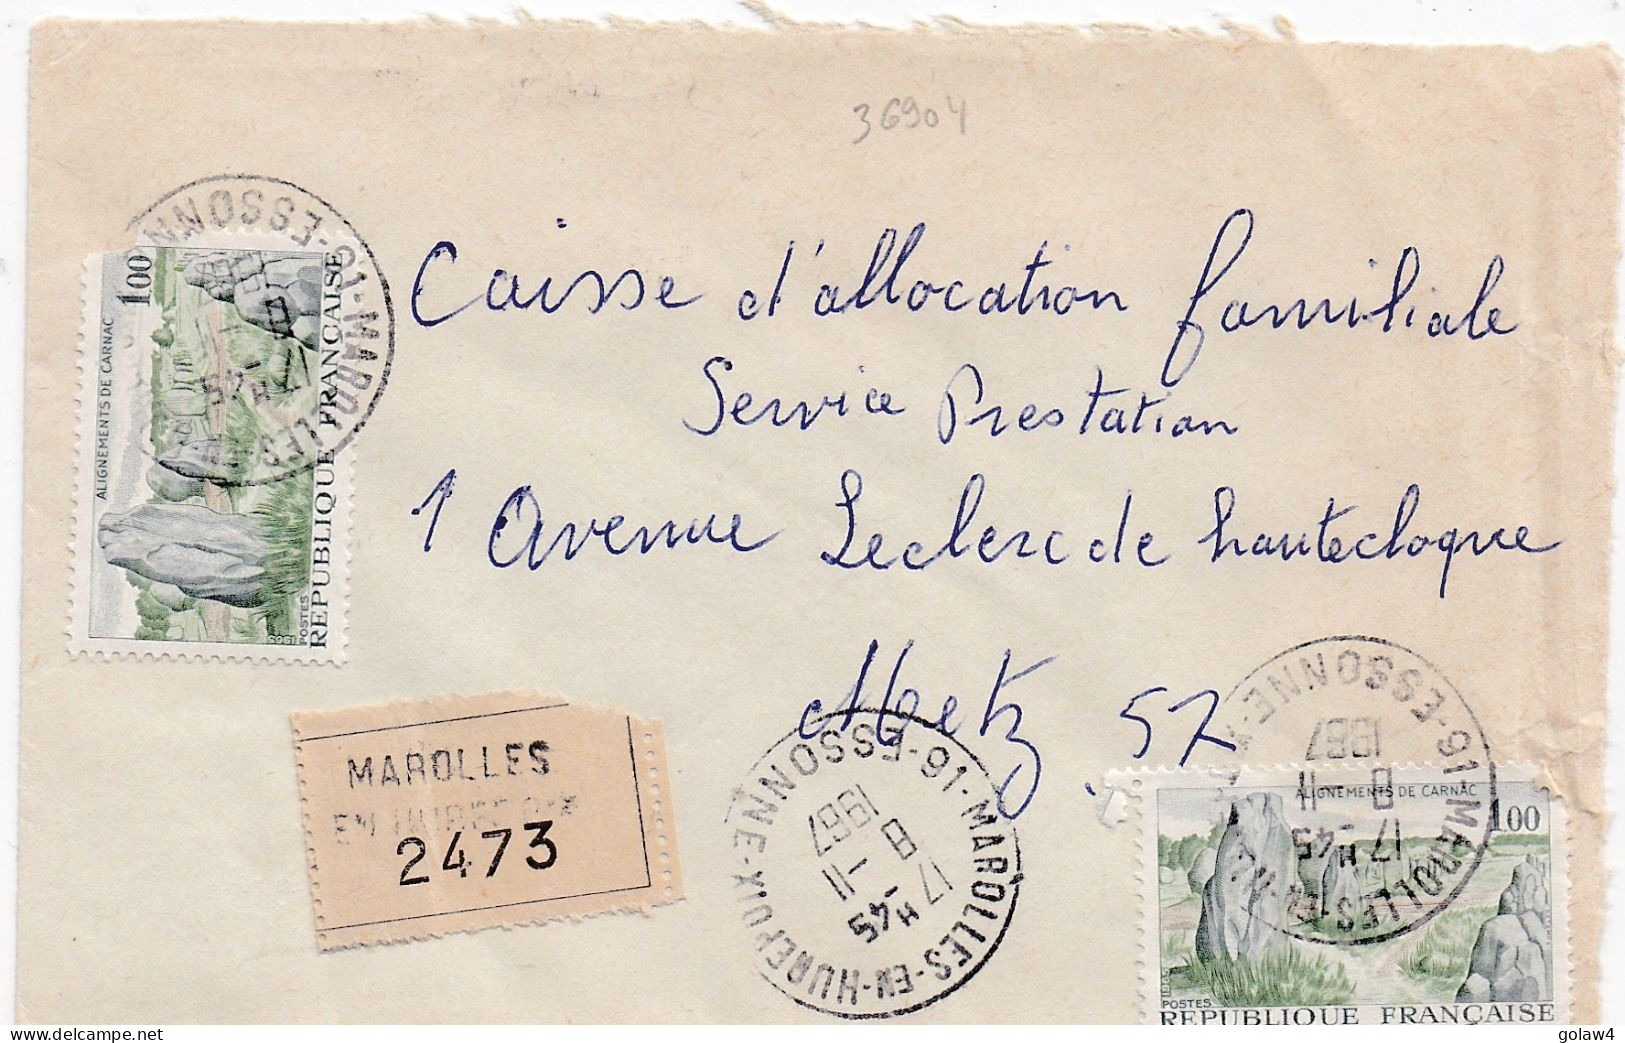 36904
Caisse d'allocation familiale
Service Prestation
1 Avenue Leclerc de hauteclogue
Metz 57
1.00
ALIGNEMENTS DE CARNAC
RÉPUBLIQUE FRANÇAISE
POSTES
1965
91-MAROLLES
ESSONNE
17 H 45
MAROLLES
2473
MAROLLES-EN-HUREPOIX
91-ESSONNE
17 H 45
8 -11
1967
91-MAROLLES
ESSONNE
17 H 45
8 -11
1967
ALIGNEMENTS DE CARNAC
1.00
POSTES
RÉPUBLIQUE FRANÇAISE
delcampe.net
golaw4